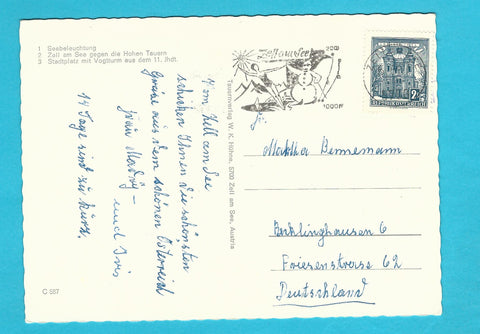 1 Seebeleuchtung
2 Zell am See gegen die Hohen Tauern
3 Stadtplatz mit Vogtturm aus dem 11. Jhdt.
Vom Zell am See
schicken Ihnen die schönsten
Grüße aus dem schönen Österreich
und Iris
14 Tage sind zu kurz.
Tauernverlag W. K. Hühne, 5700 Zell am See, Austria
C 587
Zell am See
REPUBLIK ÖSTERREICH
Martha Bennemann
Recklinghausen 6
Friesenstrasse 62
Deutschland